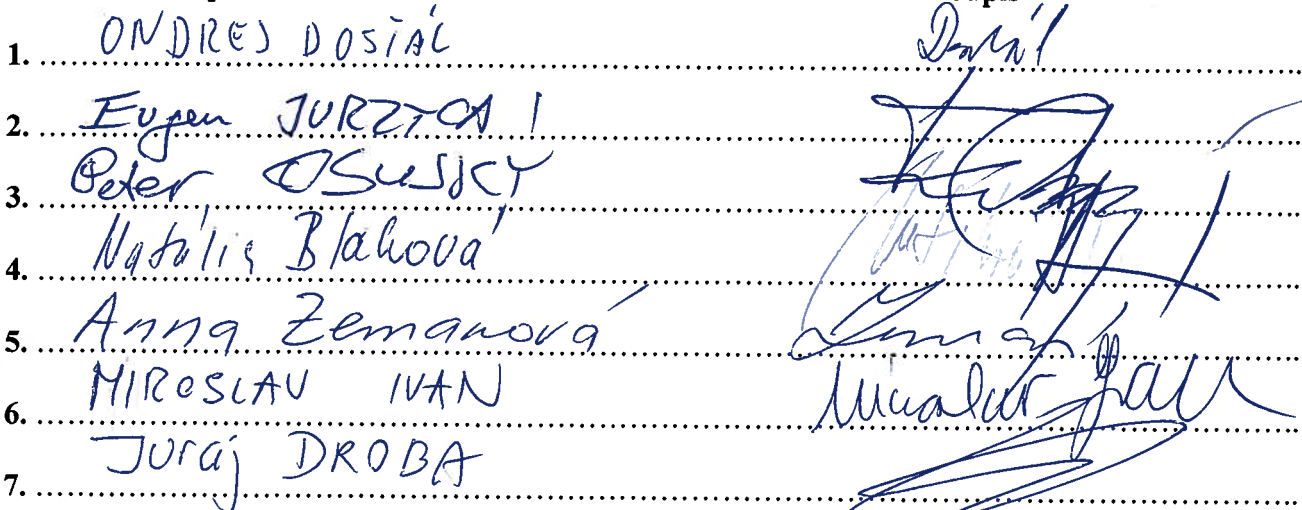 1. ONDREJ DOSTÁL Dostál
2. Eugen JURZYCA
3. Peter OSUSKÝ
4. Natália Blahová
5. Anna Zemanová Zemanová
6. MIROSLAV IVAN Miroslav Ivan
7. Juraj DROBA